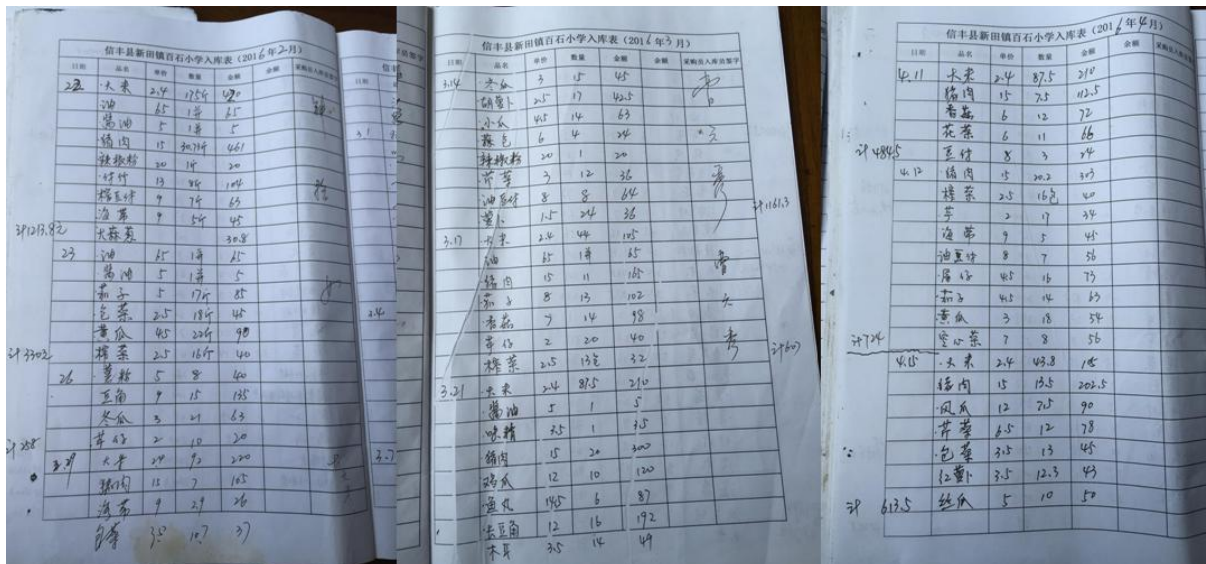 信丰县新田镇百石小学入库表(2016年2月)
日期 品名 单价 数量 金额 金额 采购员入库员签字
大米 2.4 175斤 420
油 65 1井 65
酱油 5 1井 5
猪肉 15 30.73斤 461
辣椒粉 20 1斤 20
13 8斤 104
9 7斤 63
海带 9 5斤 45
计1213.8元 大蒜葱 30.8
23 油 65 1井 65
酱油 5 1井 5
茄子 5 17斤 85
包菜 2.5 18斤 45
黄瓜 4.5 22斤 98
计330元 榨菜 2.5 16斤 40
26 薯粉 5 8 40
豆角 9 15 135
冬瓜 3 21 63
计258 芋仔 2 10 20
2.29 大米 2.4 92 220
猪肉 15 7 105
海带 9 2.9 26
包菜 3.5 10.7 37
信丰县新田镇百石小学入库表(2016年3月)
日期 品名 单价 数量 金额 金额 采购员入库员签字
3.14 冬瓜 3 15 45
胡萝卜 2.5 17 42.5
小瓜 4.5 14 63
6 4 24
辣椒粉 20 1 20
芹菜 3 12 36
油豆付 8 8 64
萝卜 1.5 24 36
计1161.3
3.17 大米 2.4 44 105
油 65 1井 65
猪肉 15 11 165
茄子 8 13 102
香菇 7 14 98
芋仔 2 20 40
榨菜 2.5 13包 32
计607
3.21 大米 2.4 87.5 210
酱油 5 1 5
味精 3.5 1 3.5
猪肉 15 20 300
鸡瓜 12 10 120
鱼丸 14.5 6 87
长豆角 12 16 192
木耳 3.5 14 49
信丰县新田镇百石小学入库表(2016年4月)
日期 品名 单价 数量 金额 金额 采购员入库员签字
4.11 大米 2.4 87.5 210
猪肉 15 7.5 112.5
香菇 6 12 72
花菜 6 11 66
计484.5 豆付 8 3 24
4.12 猪肉 15 20.2 303
榨菜 2.5 16包 40
芋 2 17 34
海带 9 5 45
油豆付 8 7 56
4.5 16 73
茄子 4.5 14 63
黄瓜 3 18 54
计724 空心菜 7 8 56
4.15 大米 2.4 43.8 105
猪肉 15 13.5 202.5
凤瓜 12 7.5 90
芹菜 6.5 12 78
包菜 3.5 13 45
红萝卜 3.5 12.3 43
计 613.5 丝瓜 5 10 50